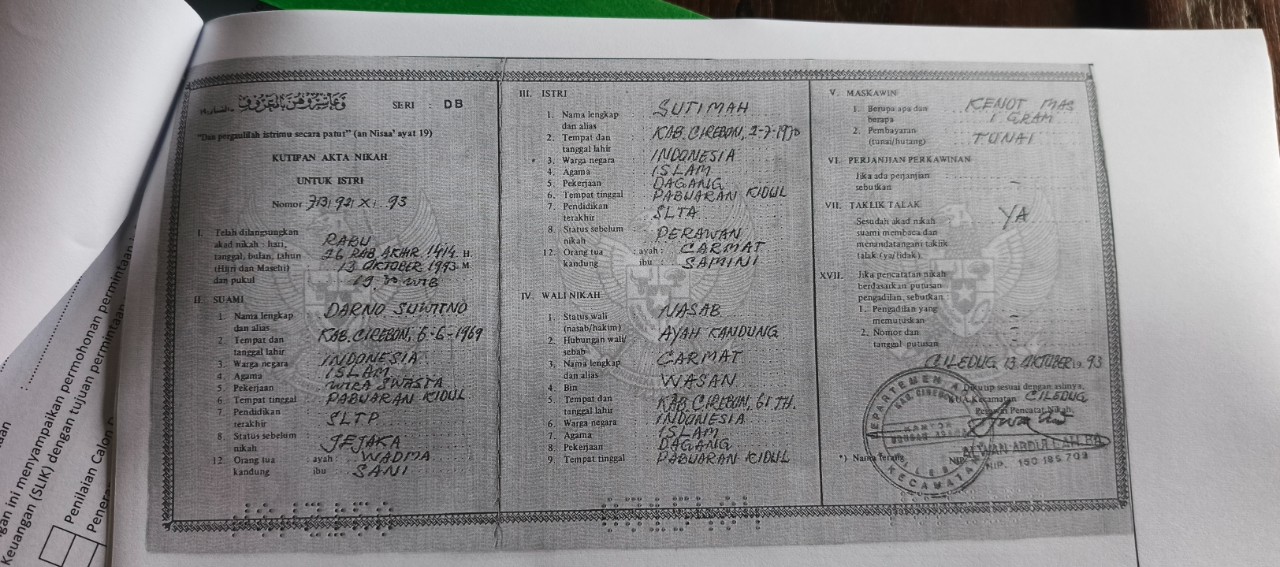 وَعَاشِرُوهُنَّ بِالْمَعْرُوفِ
SERI : DB
"Dan pergaulilah isterimu secara patut" (an Nisaa' ayat 19)
KUTIPAN AKTA NIKAH
UNTUK ISTRI
Nomor 93
I. Telah dilangsungkan
akad nikah : hari, RABU
tanggal, bulan, tahun 26 RAB. AKHIR. 1414. H.
(Hijri dan Masehi) 13 OKTOBER 1993. M
dan pukul WIB
II. SUAMI
1. Nama lengkap DARNO SUWITNO
dan alias
2. Tempat dan KAB. CIREBON, 6-6-1969
tanggal lahir
3. Warga negara INDONESIA
4. Agama ISLAM
5. Pekerjaan WIRA SWASTA
6. Tempat tinggal PABUARAN KIDUL
7. Pendidikan SLTP
terakhir
8. Status sebelum JEJAKA
nikah
12. Orang tua : ayah WADMA
kandung ibu SANI
III. ISTRI
1. Nama lengkap : SUTIMAH
dan alias
2. Tempat dan KAB. CIREBON,
tanggal lahir
* 3. Warga negara INDONESIA
4. Agama ISLAM
5. Pekerjaan DAGANG
6. Tempat tinggal PABUARAN KIDUL
7. Pendidikan SLTA
terakhir
8. Status sebelum PERAWAN
nikah
12. Orang tua : ayah : CARMAT
kandung ibu : SAMINI
IV. WALI NIKAH
1. Status wali NASAB
(nasab/hakim)
2. Hubungan wali/ AYAH KANDUNG
sebab
3. Nama lengkap CARMAT
dan alias
4. Bin WASAN
5. Tempat dan KAB. CIREBON, 61 TH.
tanggal lahir
6. Warga negara INDONESIA
7. Agama ISLAM
8. Pekerjaan DAGANG
9. Tempat tinggal PABUARAN KIDUL
V. MASKAWIN
1. Berupa apa dan KENOT MAS
berapa 1 GRAM
2. Pembayaran TUNAI
(tunai/hutang)
VI. PERJANJIAN PERKAWINAN
Jika ada perjanjian
sebutkan –
VII. TAKLIK TALAK
Sesudah akad nikah YA
suami membaca dan
menandatangani taklik
talak (ya/tidak)
XVII. Jika pencatatan nikah
berdasarkan putusan
pengadilan, sebutkan
1. Pengadilan yang –
memutuskan
2. Nomor dan –
tanggal putusan –
CILEDUG, 13 OKTOBER 19 93
Dikutip sesuai dengan aslinya,
KUA Kecamatan CILEDUG
Pegawai Pencatat Nikah,
DEPARTEMEN
KAB. CIREBON
KANTOR
URUSAN AGAMA
KECAMATAN
*) Nama terang
NIP. 150 185 703
gan ini menyampaikan permohonan permintaan
Keuangan (SLIK) dengan tujuan permintaan
Penilaian Calon